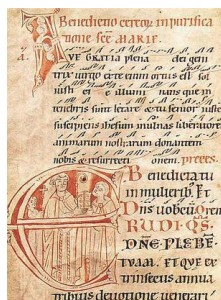 Benedictio cereoꝝ in purifica
tione sce MARIE.
VE GRATIA plena dei geni
trix uirgo ex te enim ortus est sol
iusti et e illumi nans que in
tenebris sunt letare et tu senior iuste
suscipiens ihesum in ulnas liberatore
animarum nostrarum donantem
nobis et resurrecti onem. preces.
Benedicta tu
in mulierib. Et
Dns uobcu. Oro
ERUDI. QS.
DNE. PLEBE
TVAM. ET QUE EX
trinsecus annua
tribuis deuotione uenerari